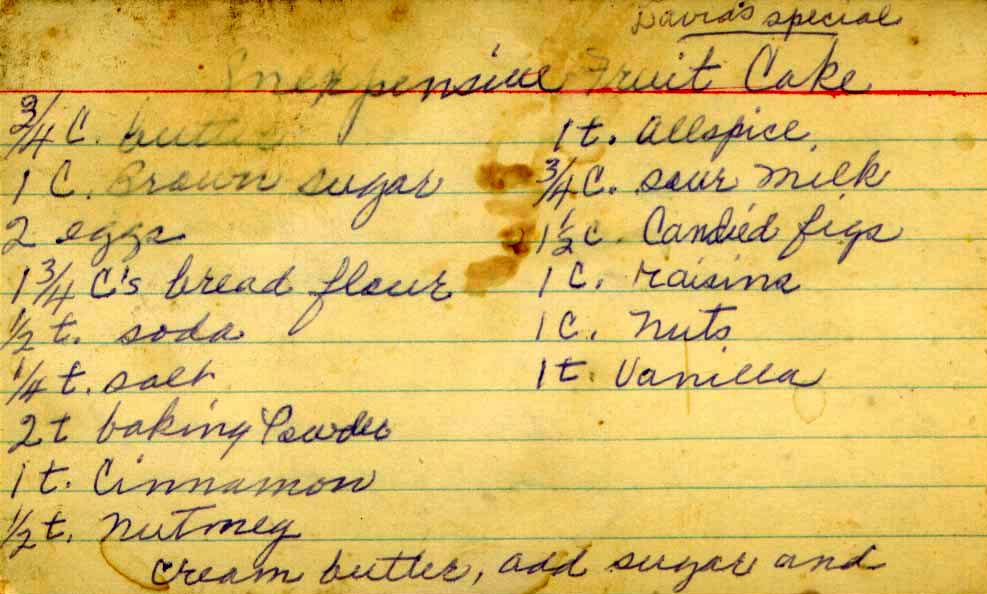 David's special
Inexpensive Fruit Cake
3/4 C. butter
1 C. Brown sugar
2 eggs
1 3/4 C's bread flour
1/2 t. soda
1/4 t. salt
2 t baking Powder
1 t. Cinnamon
1/2 t. Nutmeg
1 t. Allspice
3/4 C. sour milk
1 1/2 c. Candied figs
1 C. raisins
1 C. Nuts
1 t. Vanilla
Cream butter, add sugar and